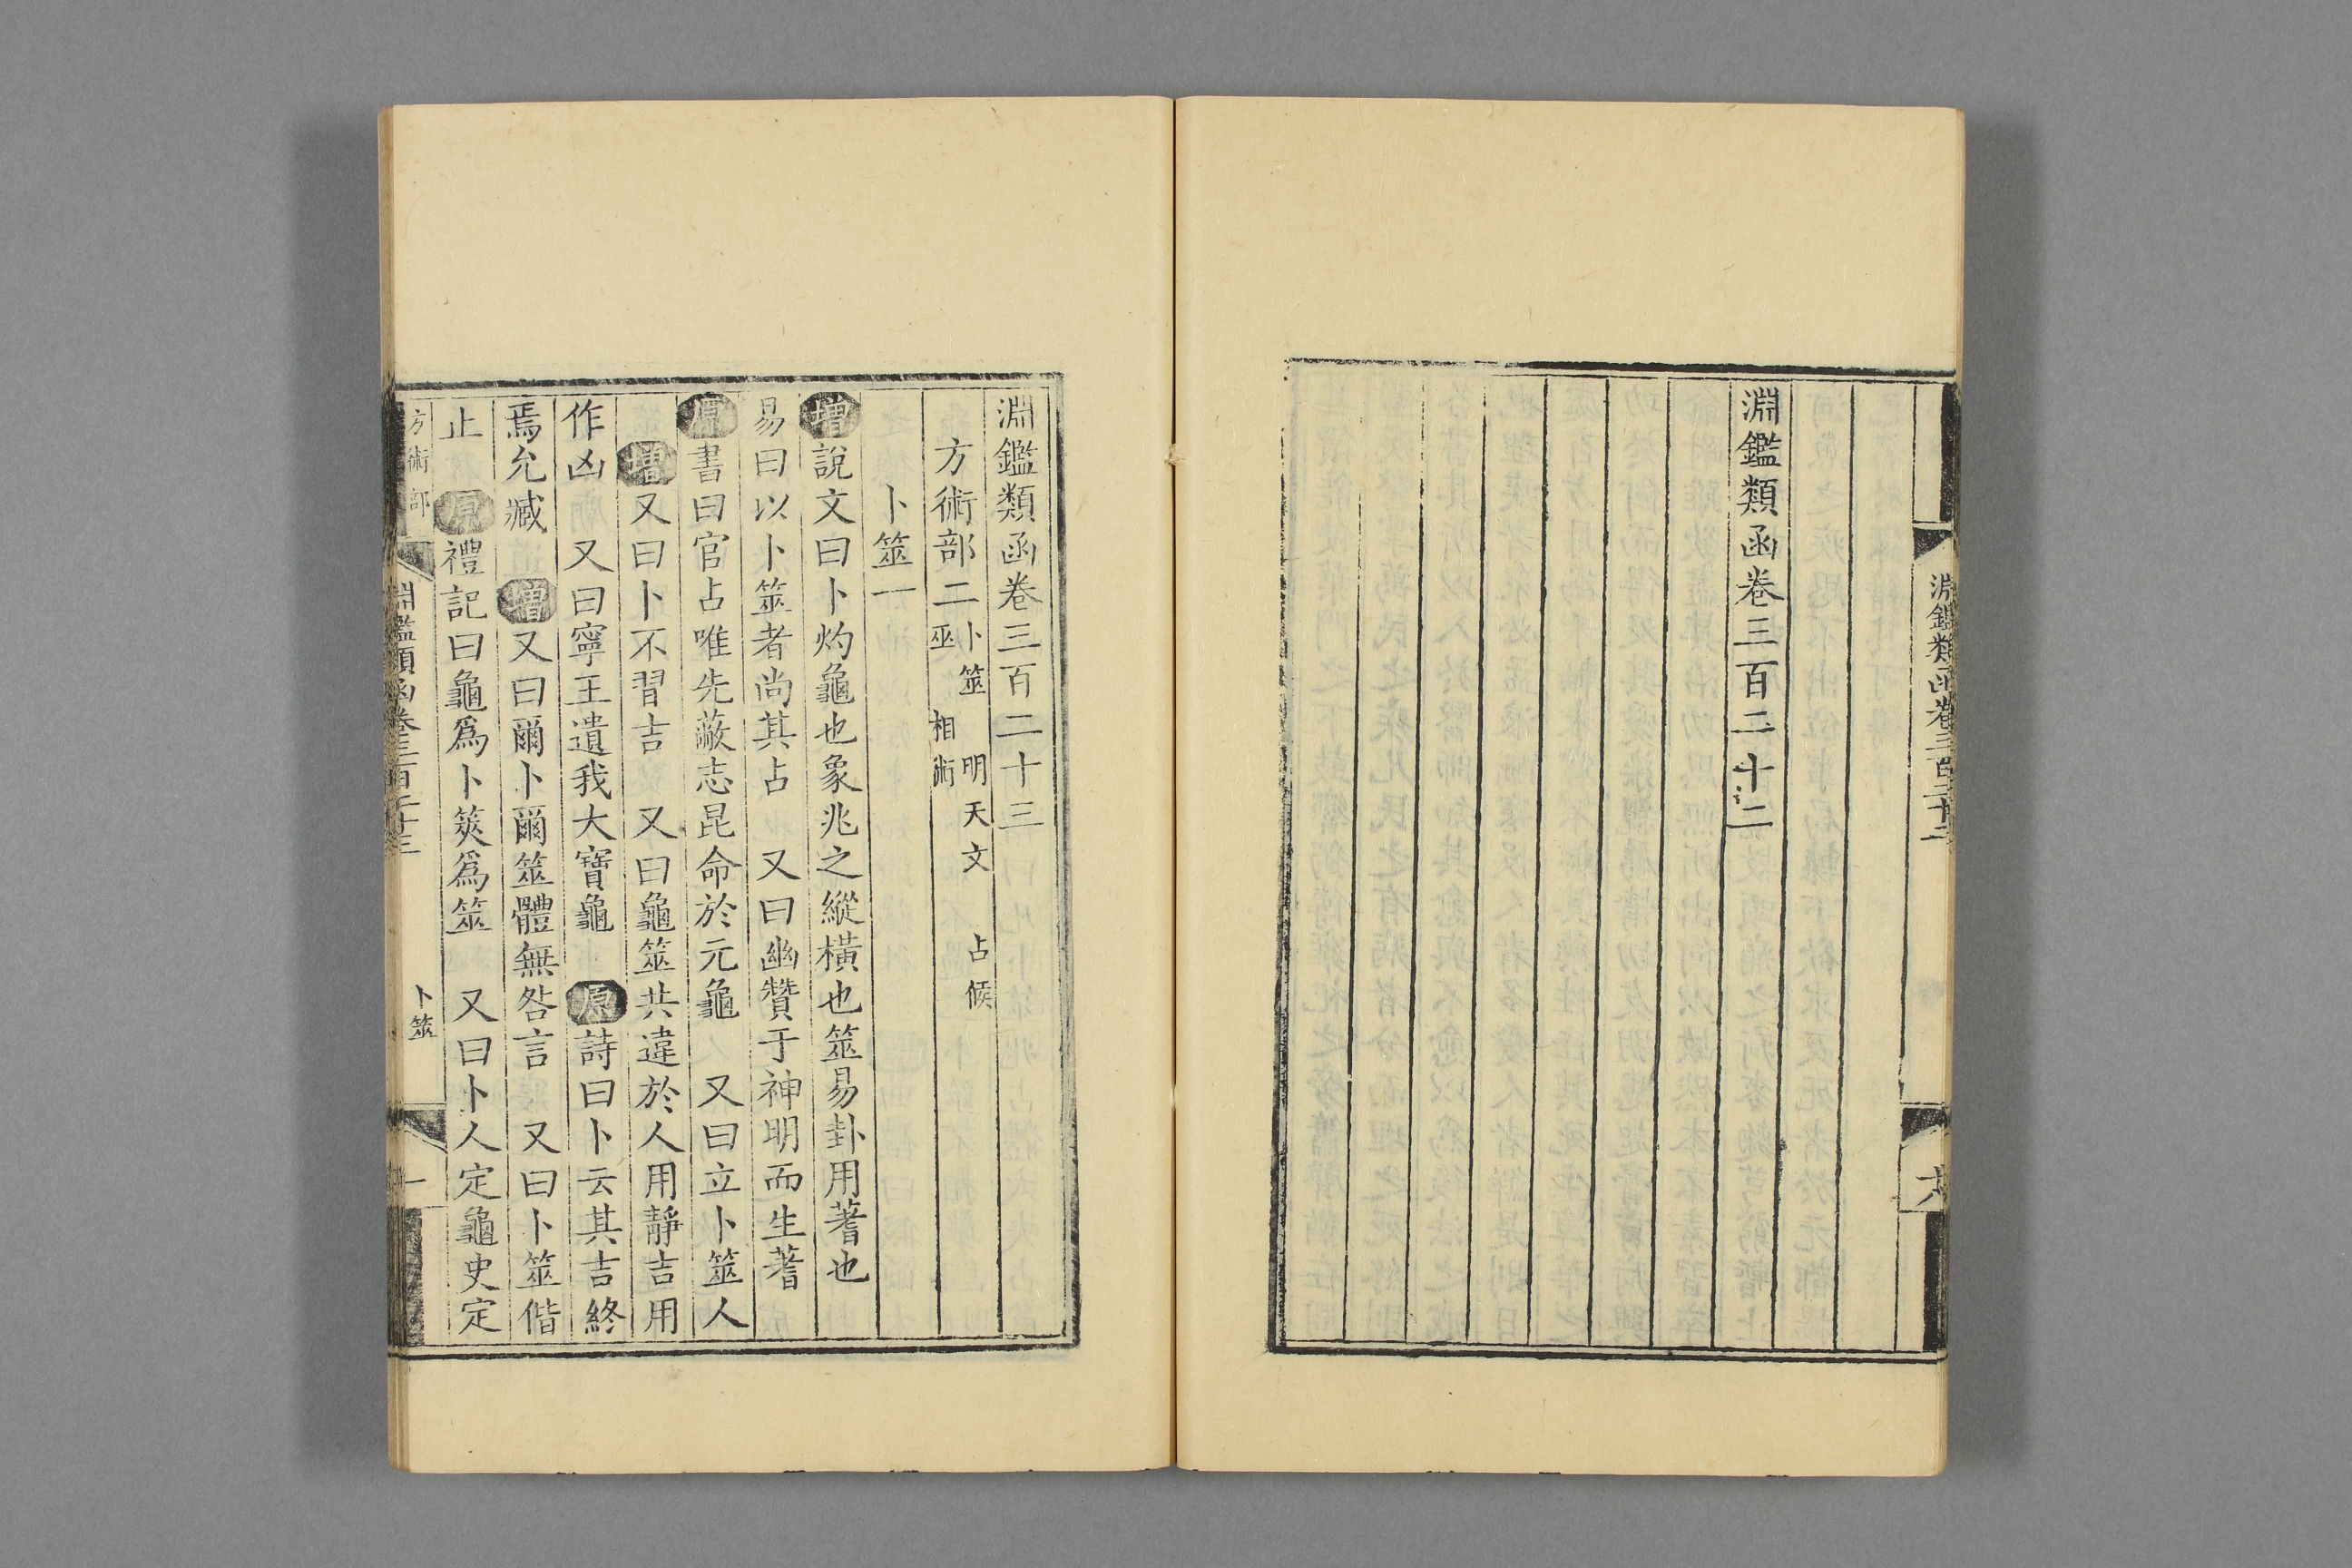 淵鑑類函卷三百二十二
淵鑑類函卷三百二十二
淵鑑類函卷三百二十三
方術部二卜筮 明天文 占候
巫 相術
卜筮一
增說文曰卜灼龜也象兆之縱橫也筮易卦用蓍也
易曰以卜筮者尚其占 又曰幽贊于神明而生蓍
原書曰官占唯先蔽志昆命於元龜 又曰立卜筮人
增又曰卜不習吉 又曰龜筮共違於人用靜吉用
作凶 又曰寧王遺我大寶龜 原詩曰卜云其吉終
焉允臧 增又曰爾卜爾筮體無咎言 又曰卜筮偕
止 原禮記曰龜爲卜筴爲筮 又曰卜人定龜史定
方術部 淵鑑類函卷三百二十三 卜筮 一